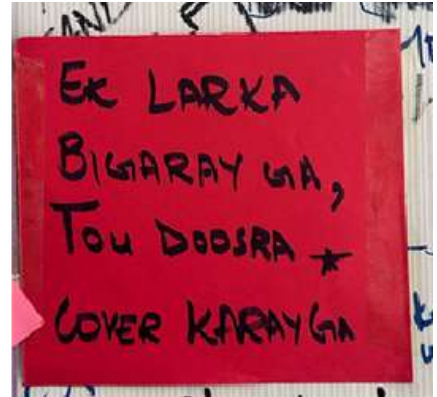 EK LARKA
BIGARAY GA,
TOU DOOSRA ★
COVER KARAYGA